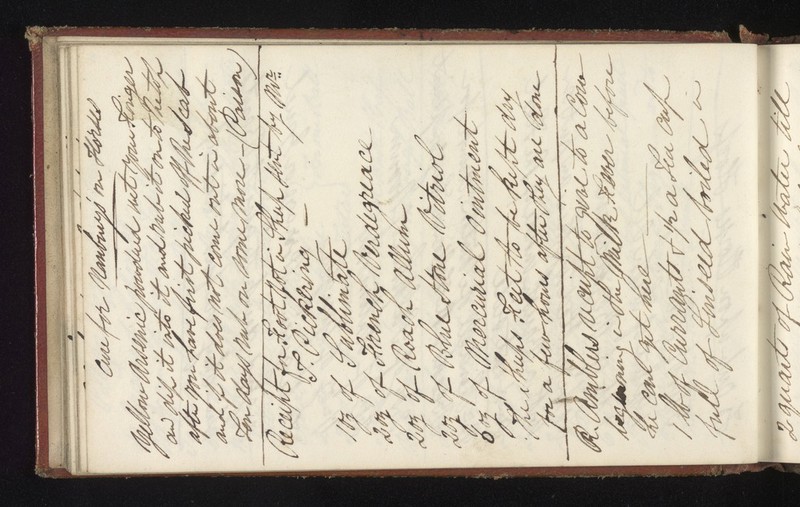 Cure for Hanburys on Horses
Yellow Arsenic powdered wet your Finger
and dip it into it and rub it on to the
after you have first picked off the Scab
and if it does not come out in about
Ten days rub on some more - (Poison)
Receipt for Foot Rot in Sheep sent by Mr
T. Pickering -
1oz of Sublimate
2oz of French Verdegreace
2oz of Roach Allum
2oz of Blue Stone Vitriol
6oz of Mercurial Ointment
The Sheeps Feet to be kept dry
for a few hours after they are done
R. Kembles receipt to give to a Cow
beginning in the Milk Fever before
he can get here
1 lb of Currants & 1/2 a Tea Cup
full of Linseed boiled in
2 quarts of Rain Water till